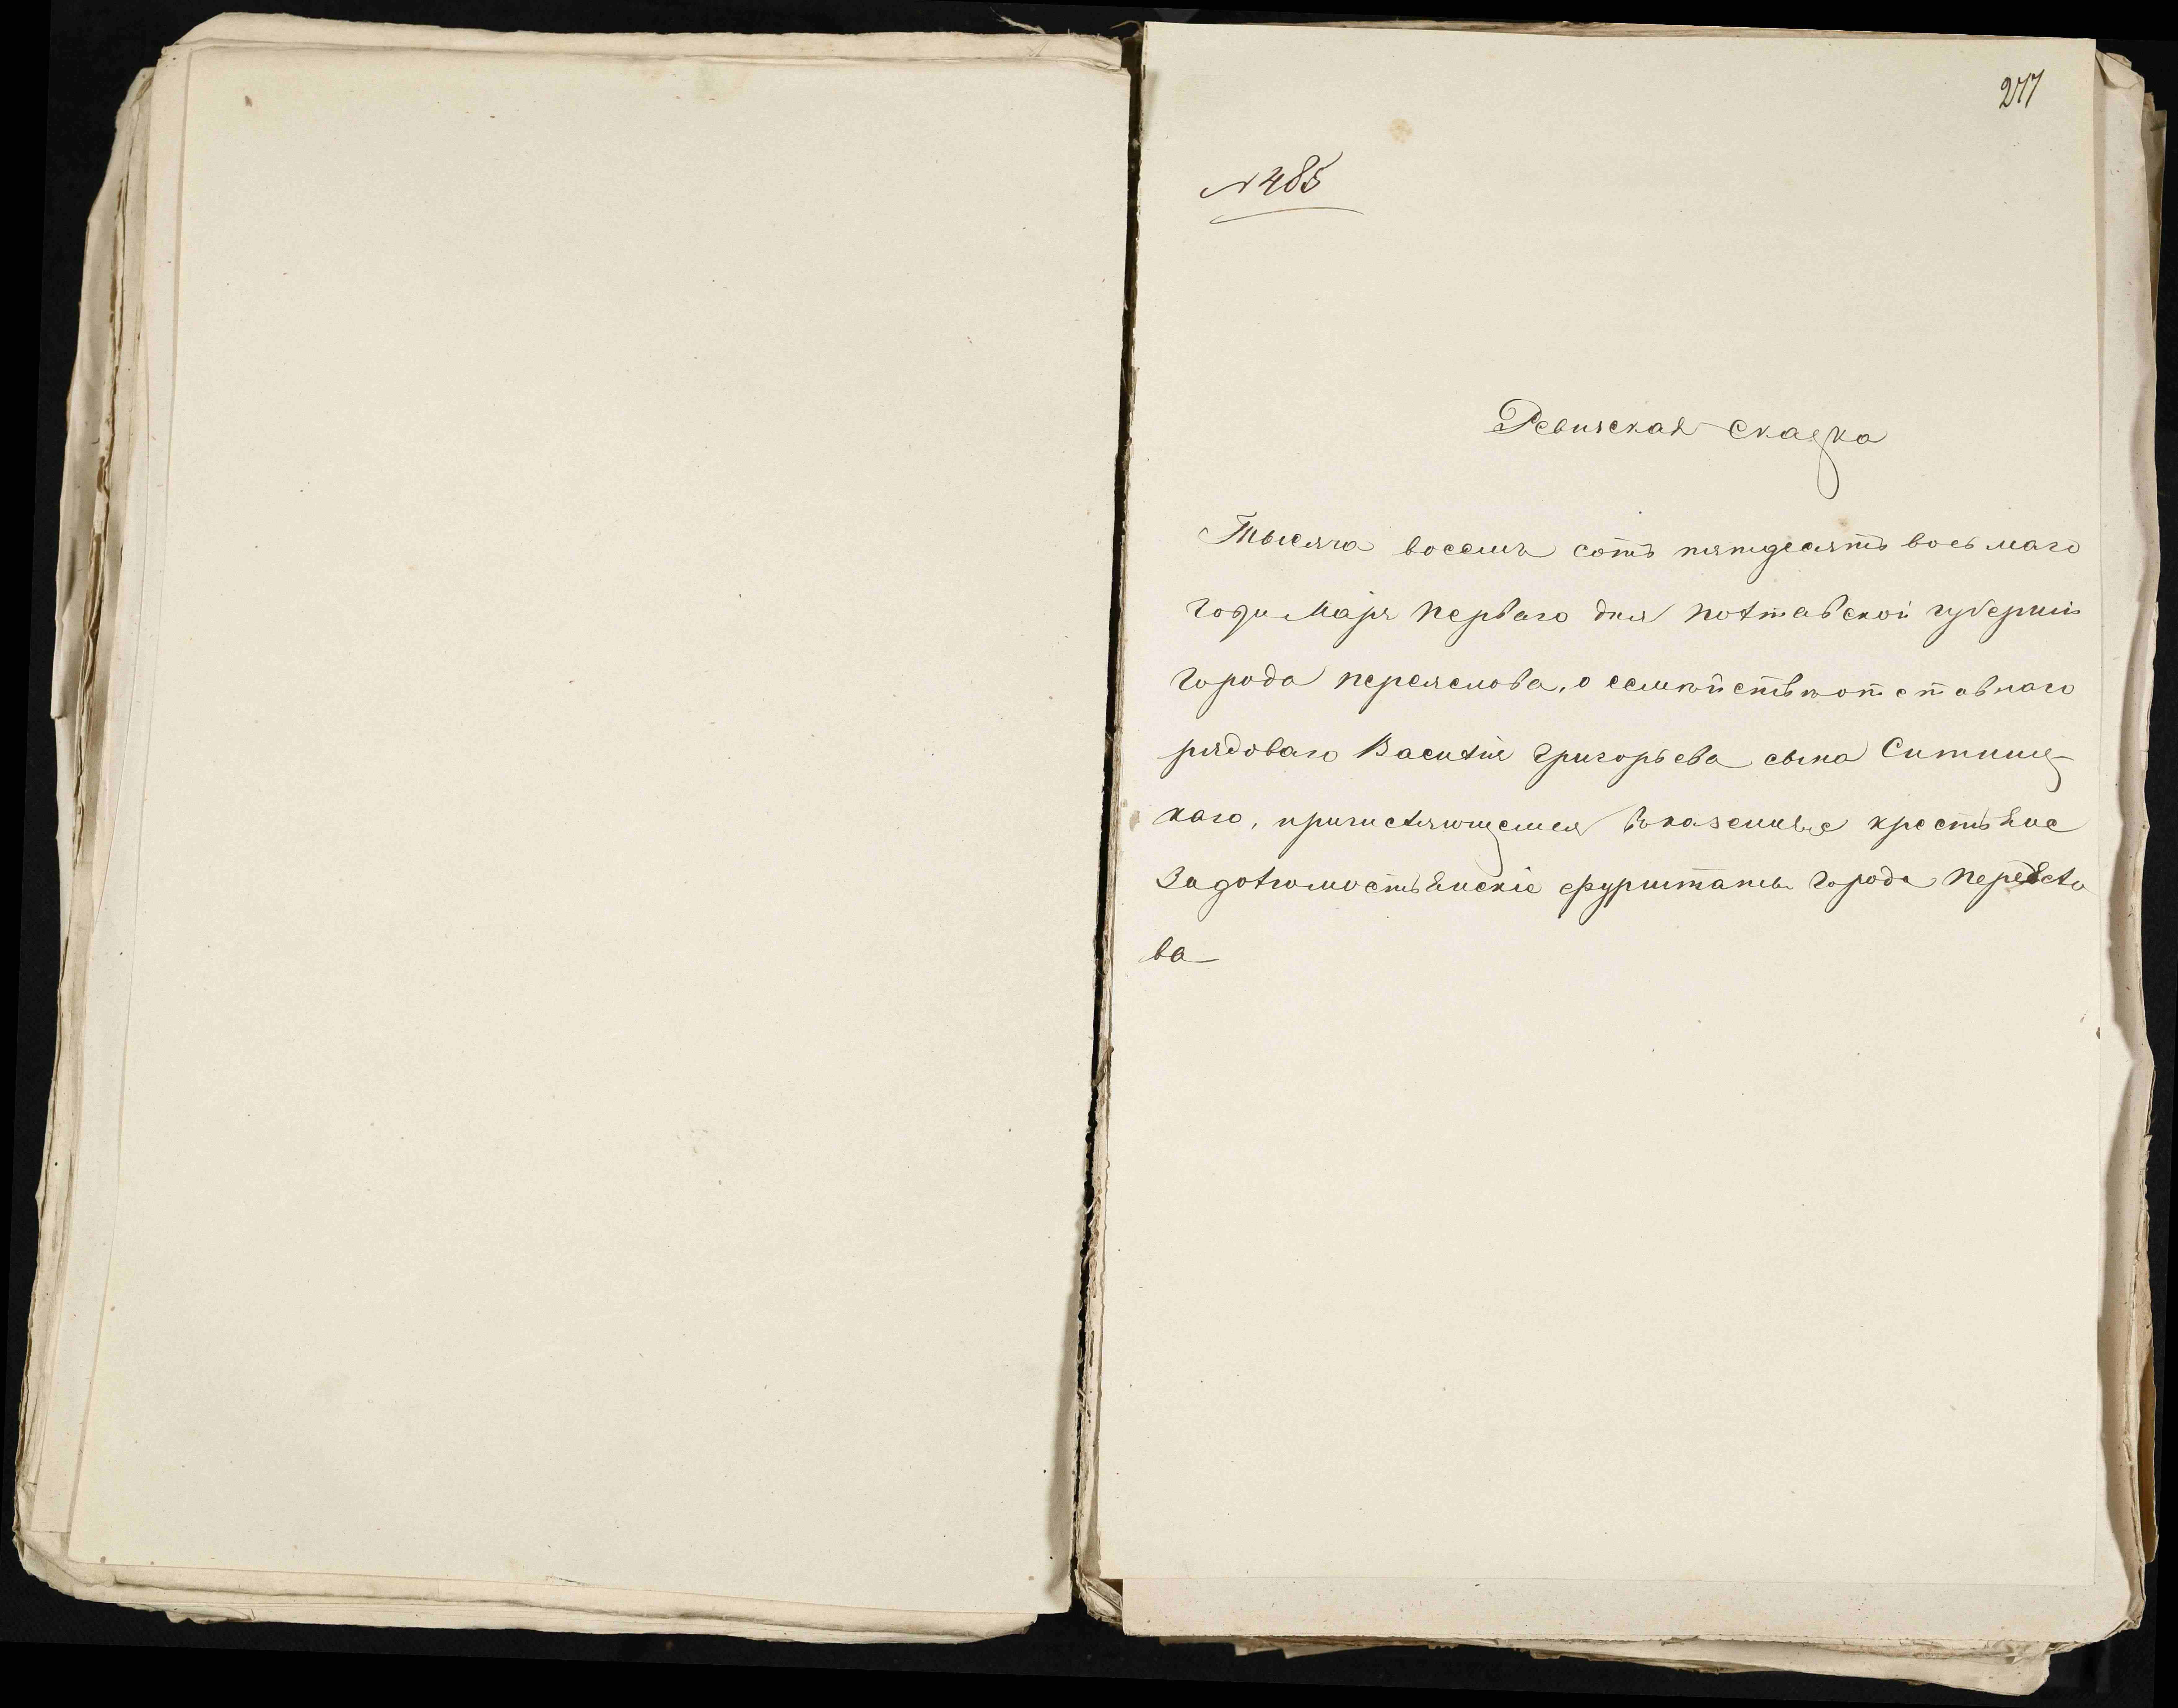 277
№ 485
Ревизская сказка
Тысяча восемь сотъ пятдесятъ восьмаго
года Маія перваго дня полтавской губерніи
города переяслова, о семѣйствѣ отставнаго
рядоваго Василія Григорьева сына
каго, причисляющемся въ казенные крестьяне
Задолгомостьянскіе города Переясло
ва